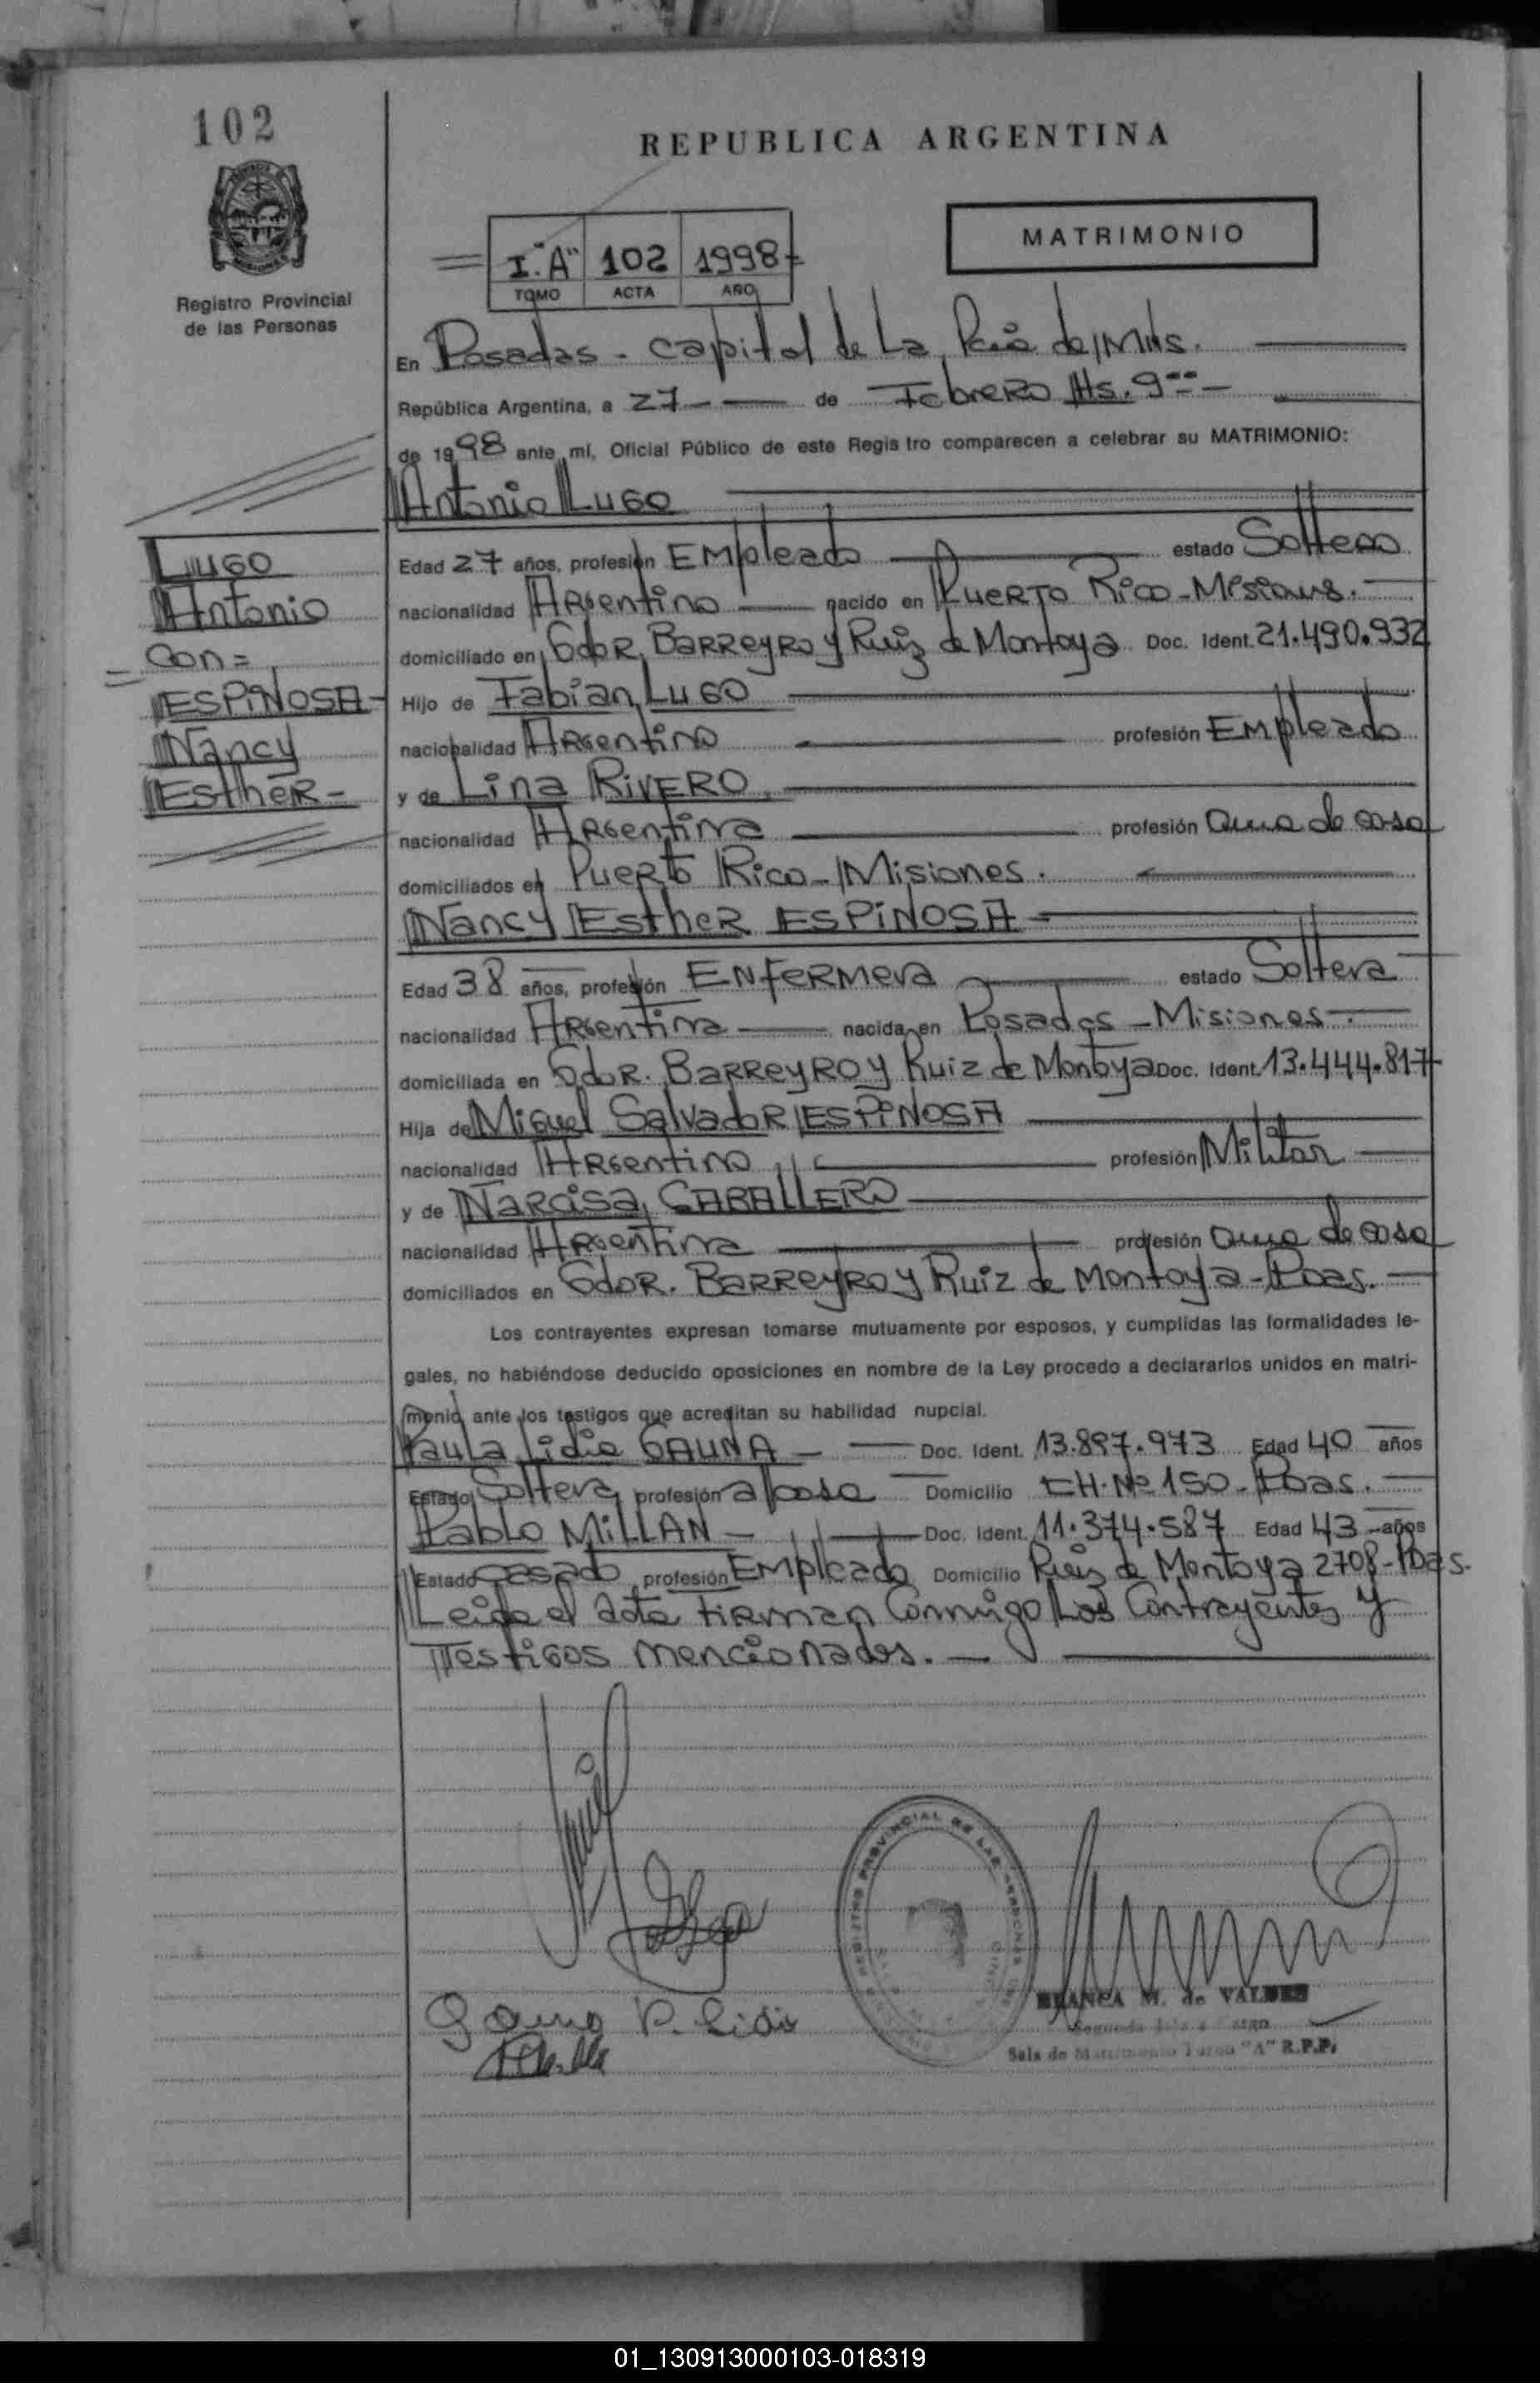 102
REPUBLICA ARGENTINA
I."A" 102 1998
TOMO ACTA AÑO
MATRIMONIO
Registro Provincial
de las Personas
En Posadas - capital de La Pcia de Mnes.
República Argentina, a 27 de Febrero Hs. 9
de 1998 ante mí, Oficial Público de este Regis tro comparecen a celebrar su MATRIMONIO:
Antonio Lugo
Lugo
Antonio
con=
ESPINOSA-
Nancy
Esther-
Edad 27 años, profesión Empleado estado Soltero
nacionalidad Argentino nacido en Puerto Rico-Misiones.
domiciliado en Gdor. Barreyro y Ruiz de Montoya Doc. Ident. 21.490.932
Hijo de Fabian Lugo
nacionalidad Argentino profesión Empleado
y de Lina RIVERO
nacionalidad Argentina profesión ama de casa
domiciliados en Puerto Rico-Misiones.
Nancy Esther ESPINOSA
Edad 38 años, profesión Enfermera estado Soltera
nacionalidad Argentina nacida en Posadas-Misiones.
domiciliada en Gdor. Barreyro y Ruiz de Montoya Doc. Ident. 13.444.817
Hija de Miguel Salvador ESPINOSA
nacionalidad Argentino profesión Militar
y de Narcisa CABALLERO
nacionalidad Argentina profesión ama de casa
domiciliados en Gdor. Barreyro y Ruiz de Montoya-Pdas.
Los contrayentes expresan tomarse mutuamente por esposos, y cumplidas las formalidades le-
gales, no habiéndose deducido oposiciones en nombre de la Ley procedo a declararlos unidos en matri-
monio ante los testigos que acreditan su habilidad nupcial.
Paula Lidia GAUNA - Doc. Ident. 13.897.973 Edad 40 años
Estado Soltera profesión a/casa Domicilio CH. Nº 150-Pdas.
Pablo MILLAN - Doc. Ident. 11.374.587 Edad 43 años
Estado casado profesión Empleado Domicilio Ruiz de Montoya 2708-Pdas.
Leida el acta firman conmigo los Contrayentes y
Testigos mencionados.
Gauna P. Lidia
BLANCA M. de VALDES
Sala de Matrimonio Turno "A" R.P.P.
01_130913000103-018319